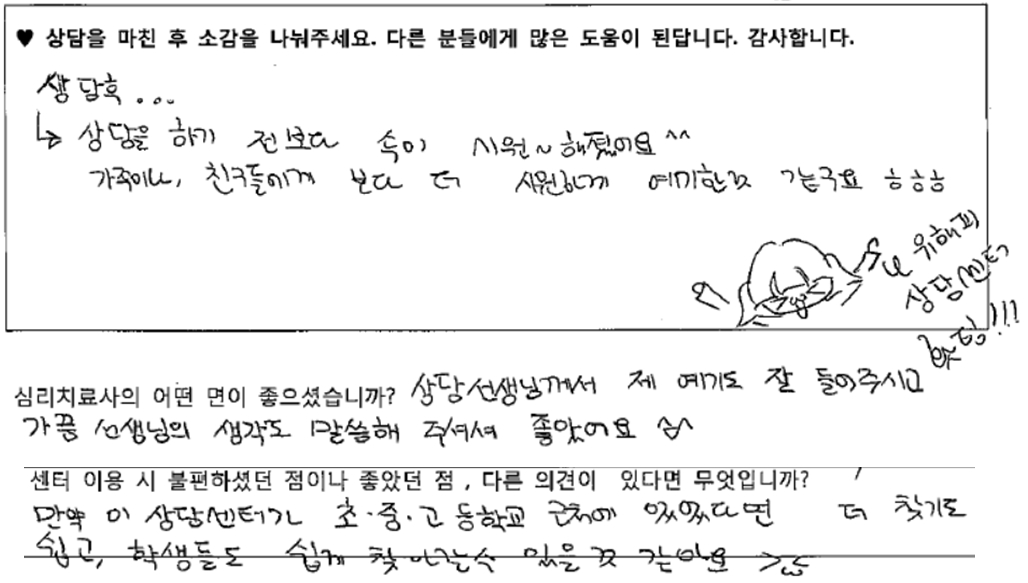 ♥ 상담을 마친 후 소감을 나눠주세요. 다른 분들에게 많은 도움이 된답니다. 감사합니다.
상담후...
↳ 상담을 하기 전보다 속이 시원~해졌어요^^
가족이나, 친구들에게 보다 더 시원하게 예기한것 같구요 ㅎㅎㅎ
위해피
상담센터
홧팅!!!
심리치료사의 어떤 면이 좋으셨습니까? 상담선생님께서 제 예기도 잘 들어주시고
가끔 선생님의 생각도 말씀해 주셔서 좋았어요 ^^
센터 이용 시 불편하셨던 점이나 좋았던 점, 다른 의견이 있다면 무엇입니까?
만약 이 상담센터가 초·중·고 등학교 근처에 있었다면 더 찾기도
쉽고, 학생들도 쉽게 찾아갈수 있을것 같아요